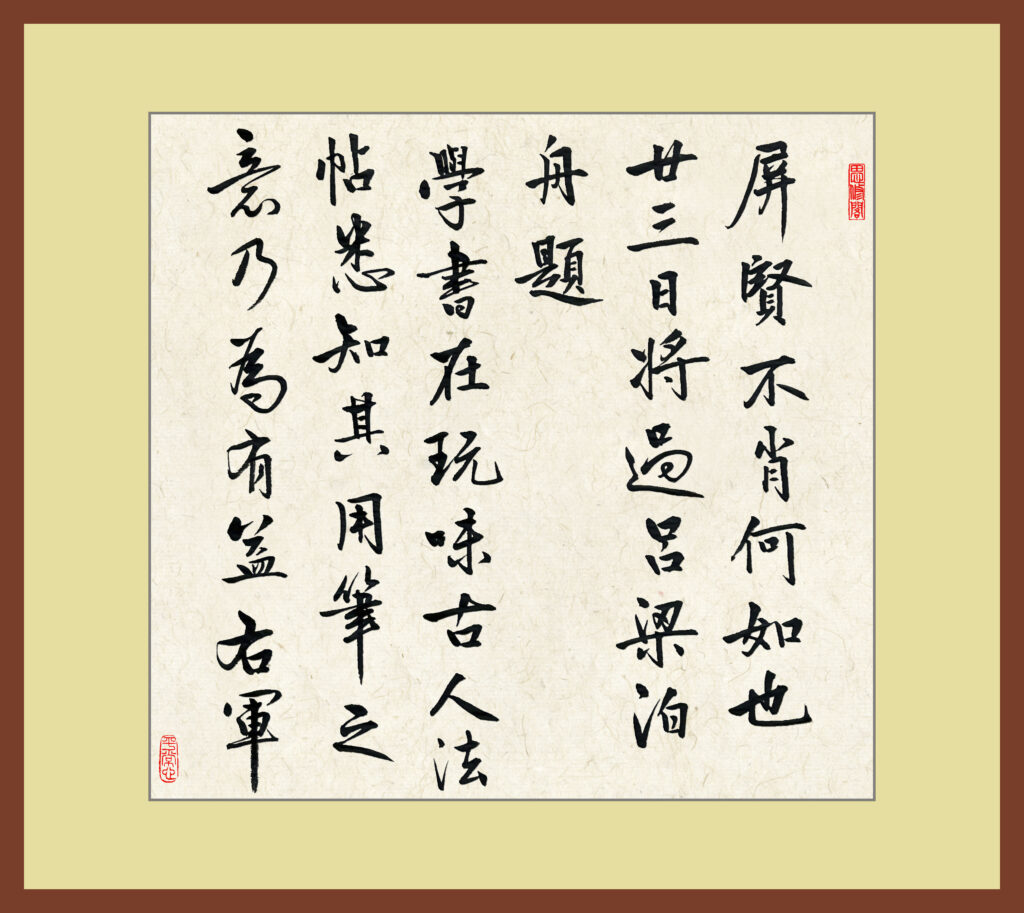 屏賢不肖何如也
廿三日將過呂梁泊
舟題
學書在玩味古人法
帖悉知其用筆之
意乃為有益右軍
平常心